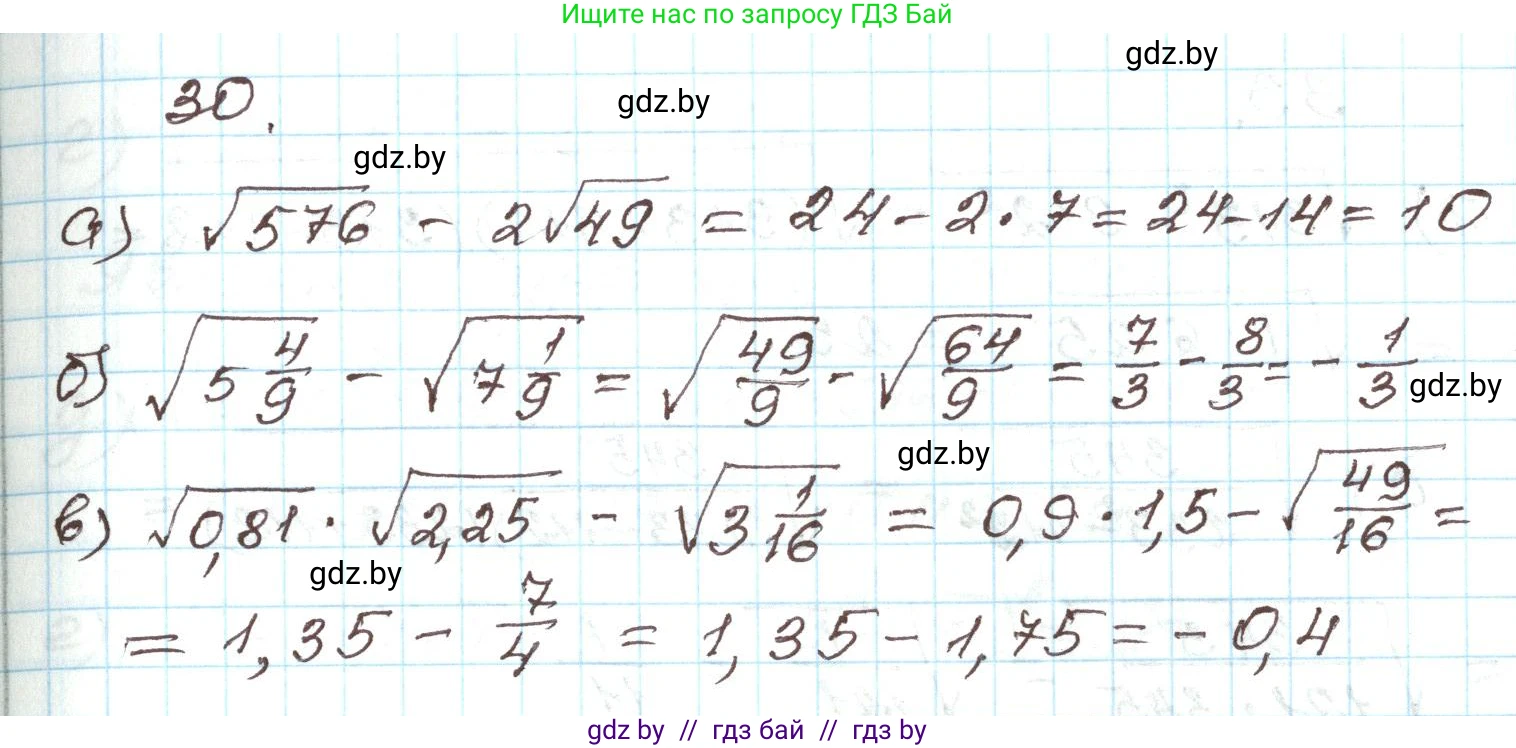 Ищите нас по запросу ГДЗ Бай
gdz.by
30.
gdz.by
gdz.by
а) √576 - 2√49 = 24 - 2·7 = 24 - 14 = 10
б) √(5 4/9) - √(7 1/9) = √(49/9) - √(64/9) = 7/3 - 8/3 = - 1/3
gdz.by
gdz.by
в) √0,81 · √2,25 - √(3 1/16) = 0,9 · 1,5 - √(49/16) =
gdz.by
= 1,35 - 7/4 = 1,35 - 1,75 = - 0,4
gdz.by // гдз бай // гдз by